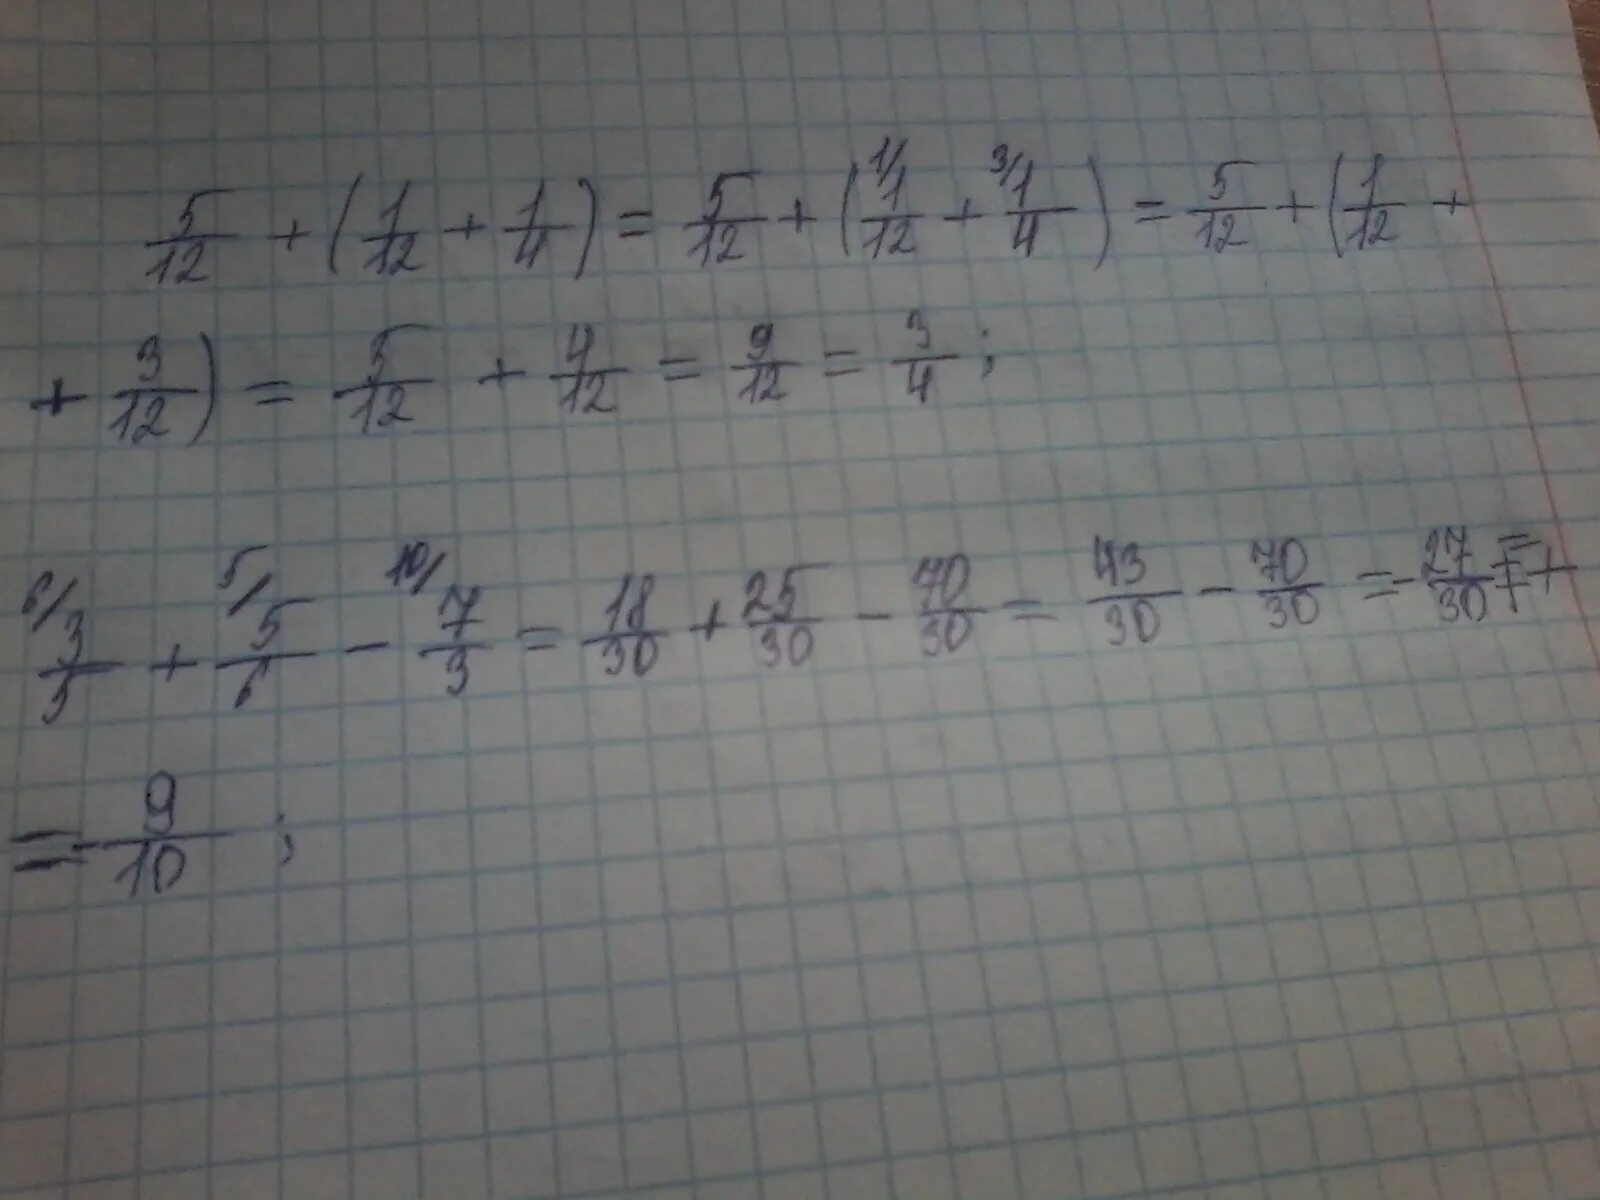 5/12 + (1/12 + 1/4) = 5/12 + (1/ 1/12 + 3/ 1/4) = 5/12 + (1/12 +
+ 3/12) = 5/12 + 4/12 = 9/12 = 3/4 ;
6/ 3/5 + 5/ 5/6 - 10/ 7/3 = 18/30 + 25/30 - 70/30 = 43/30 - 70/30 = - 27/30 =
= - 9/10 ;